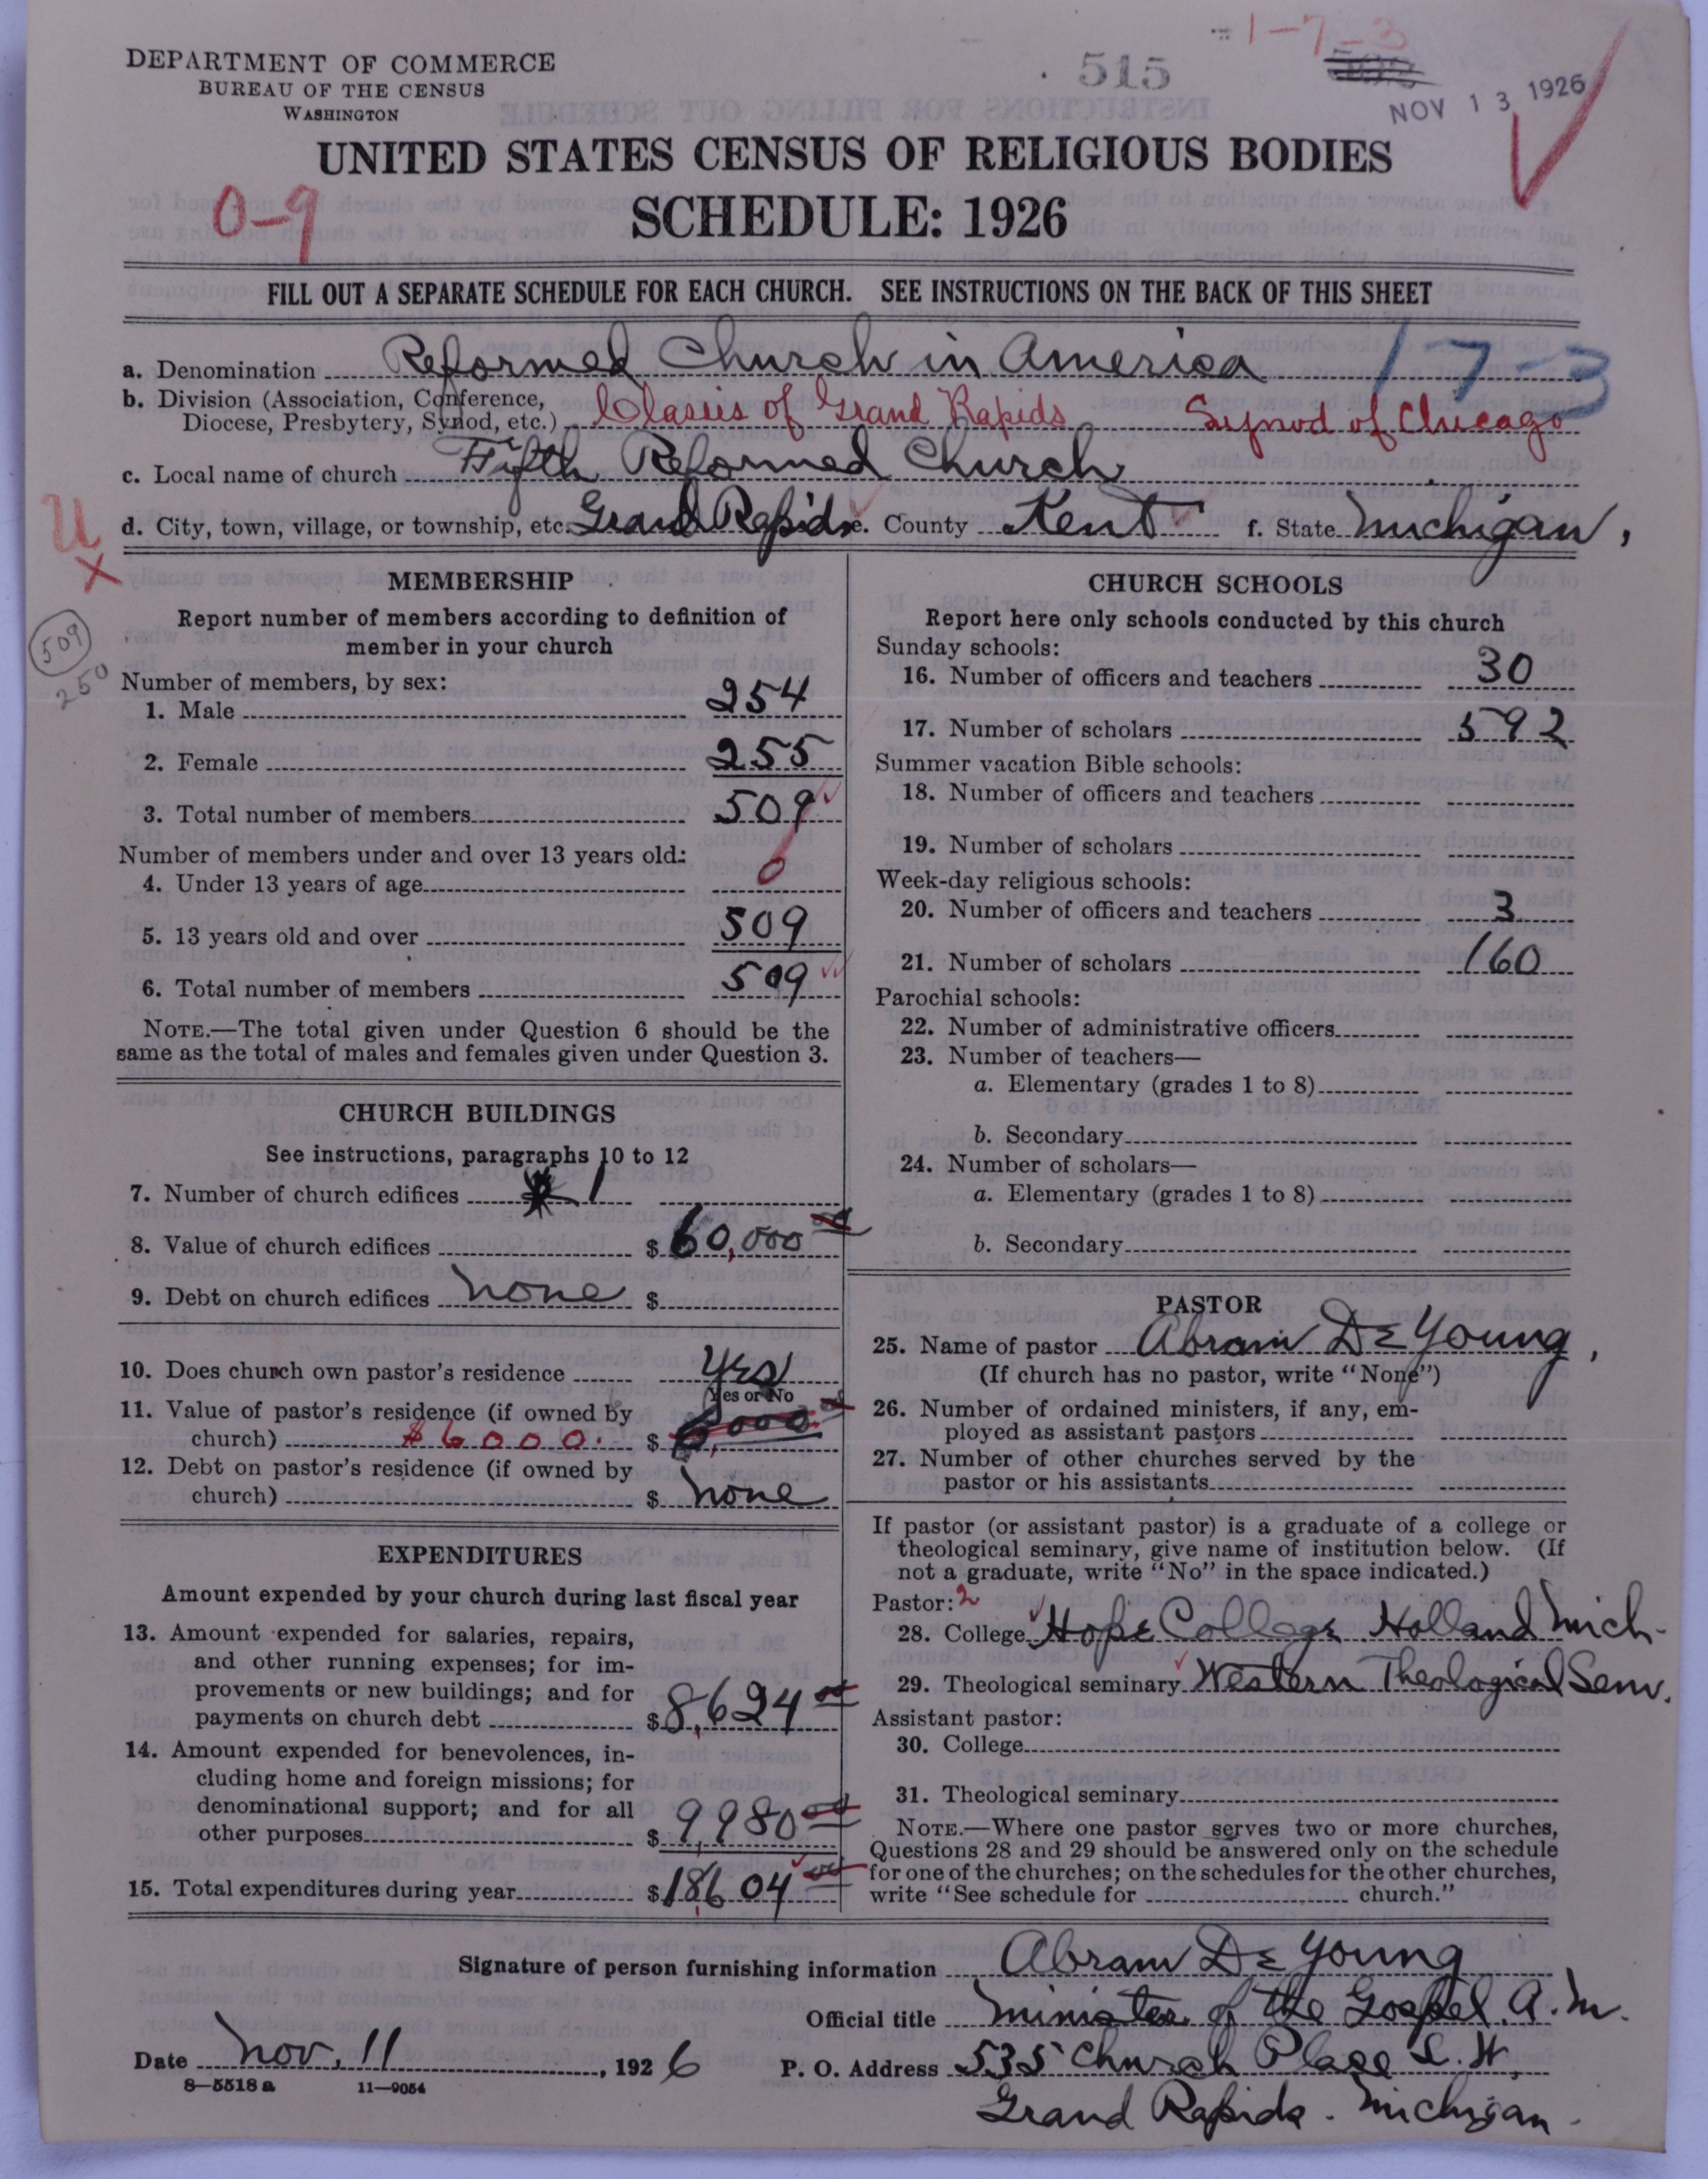 1-7-3
DEPARTMENT OF COMMERCE
BUREAU OF THE CENSUS
WASHINGTON
515
NOV 13 1926
UNITED STATES CENSUS OF RELIGIOUS BODIES
0-9
SCHEDULE: 1926
FILL OUT A SEPARATE SCHEDULE FOR EACH CHURCH. SEE INSTRUCTIONS ON THE BACK OF THIS SHEET
a. Denomination Reformed Church in America 17-3
b. Division (Association, Conference,
Diocese, Presbytery, Synod, etc.) Classis of Grand Rapids Synod of Chicago
c. Local name of church Fifth Reformed Church
d. City, town, village, or township, etc. Grand Rapids e. County Kent f. State Michigan,
U
X
509
250
MEMBERSHIP
Report number of members according to definition of
member in your church
Number of members, by sex:
1. Male 254
2. Female 255
3. Total number of members 509
Number of members under and over 13 years old:
4. Under 13 years of age 0
5. 13 years old and over 509
6. Total number of members 509
NOTE.—The total given under Question 6 should be the
same as the total of males and females given under Question 3.
CHURCH BUILDINGS
See instructions, paragraphs 10 to 12
7. Number of church edifices 1
8. Value of church edifices $ 60,000
9. Debt on church edifices none $
10. Does church own pastor's residence Yes
Yes or No
11. Value of pastor's residence (if owned by
church) $6000. $ 6,000
12. Debt on pastor's residence (if owned by
church) $ none
EXPENDITURES
Amount expended by your church during last fiscal year
13. Amount expended for salaries, repairs,
and other running expenses; for im-
provements or new buildings; and for
payments on church debt $ 8,624
14. Amount expended for benevolences, in-
cluding home and foreign missions; for
denominational support; and for all
other purposes $ 9,980
15. Total expenditures during year $ 18,604
CHURCH SCHOOLS
Report here only schools conducted by this church
Sunday schools:
16. Number of officers and teachers 30
17. Number of scholars 592
Summer vacation Bible schools:
18. Number of officers and teachers
19. Number of scholars
Week-day religious schools:
20. Number of officers and teachers 3
21. Number of scholars 160
Parochial schools:
22. Number of administrative officers
23. Number of teachers—
a. Elementary (grades 1 to 8)
b. Secondary
24. Number of scholars—
a. Elementary (grades 1 to 8)
b. Secondary
PASTOR
25. Name of pastor Abram De Young,
(If church has no pastor, write "None")
26. Number of ordained ministers, if any, em-
ployed as assistant pastors
27. Number of other churches served by the
pastor or his assistants
If pastor (or assistant pastor) is a graduate of a college or
theological seminary, give name of institution below. (If
not a graduate, write "No" in the space indicated.)
Pastor: 2
28. College Hope College Holland Mich-
29. Theological seminary Western Theological Sem.
Assistant pastor:
30. College
31. Theological seminary
NOTE.—Where one pastor serves two or more churches,
Questions 28 and 29 should be answered only on the schedule
for one of the churches; on the schedules for the other churches,
write "See schedule for church."
Signature of person furnishing information Abram De Young
Official title Minister of the Gospel. A. M.
Date Nov. 11, 1926 P. O. Address 535 Church Place S. W.
8—5518 a 11—9054
Grand Rapids. Michigan.